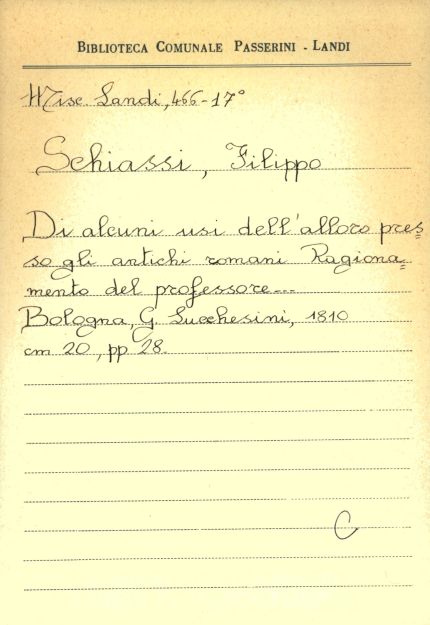 BIBLIOTECA COMUNALE PASSERINI - LANDI
Misc. Landi, 466-17°
Schiassi, Filippo
Di alcuni usi dell'alloro pres=
so gli antichi romani Ragiona=
mento del professore...
Bologna, G. Lucchesini, 1810
cm 20, pp 28.
C